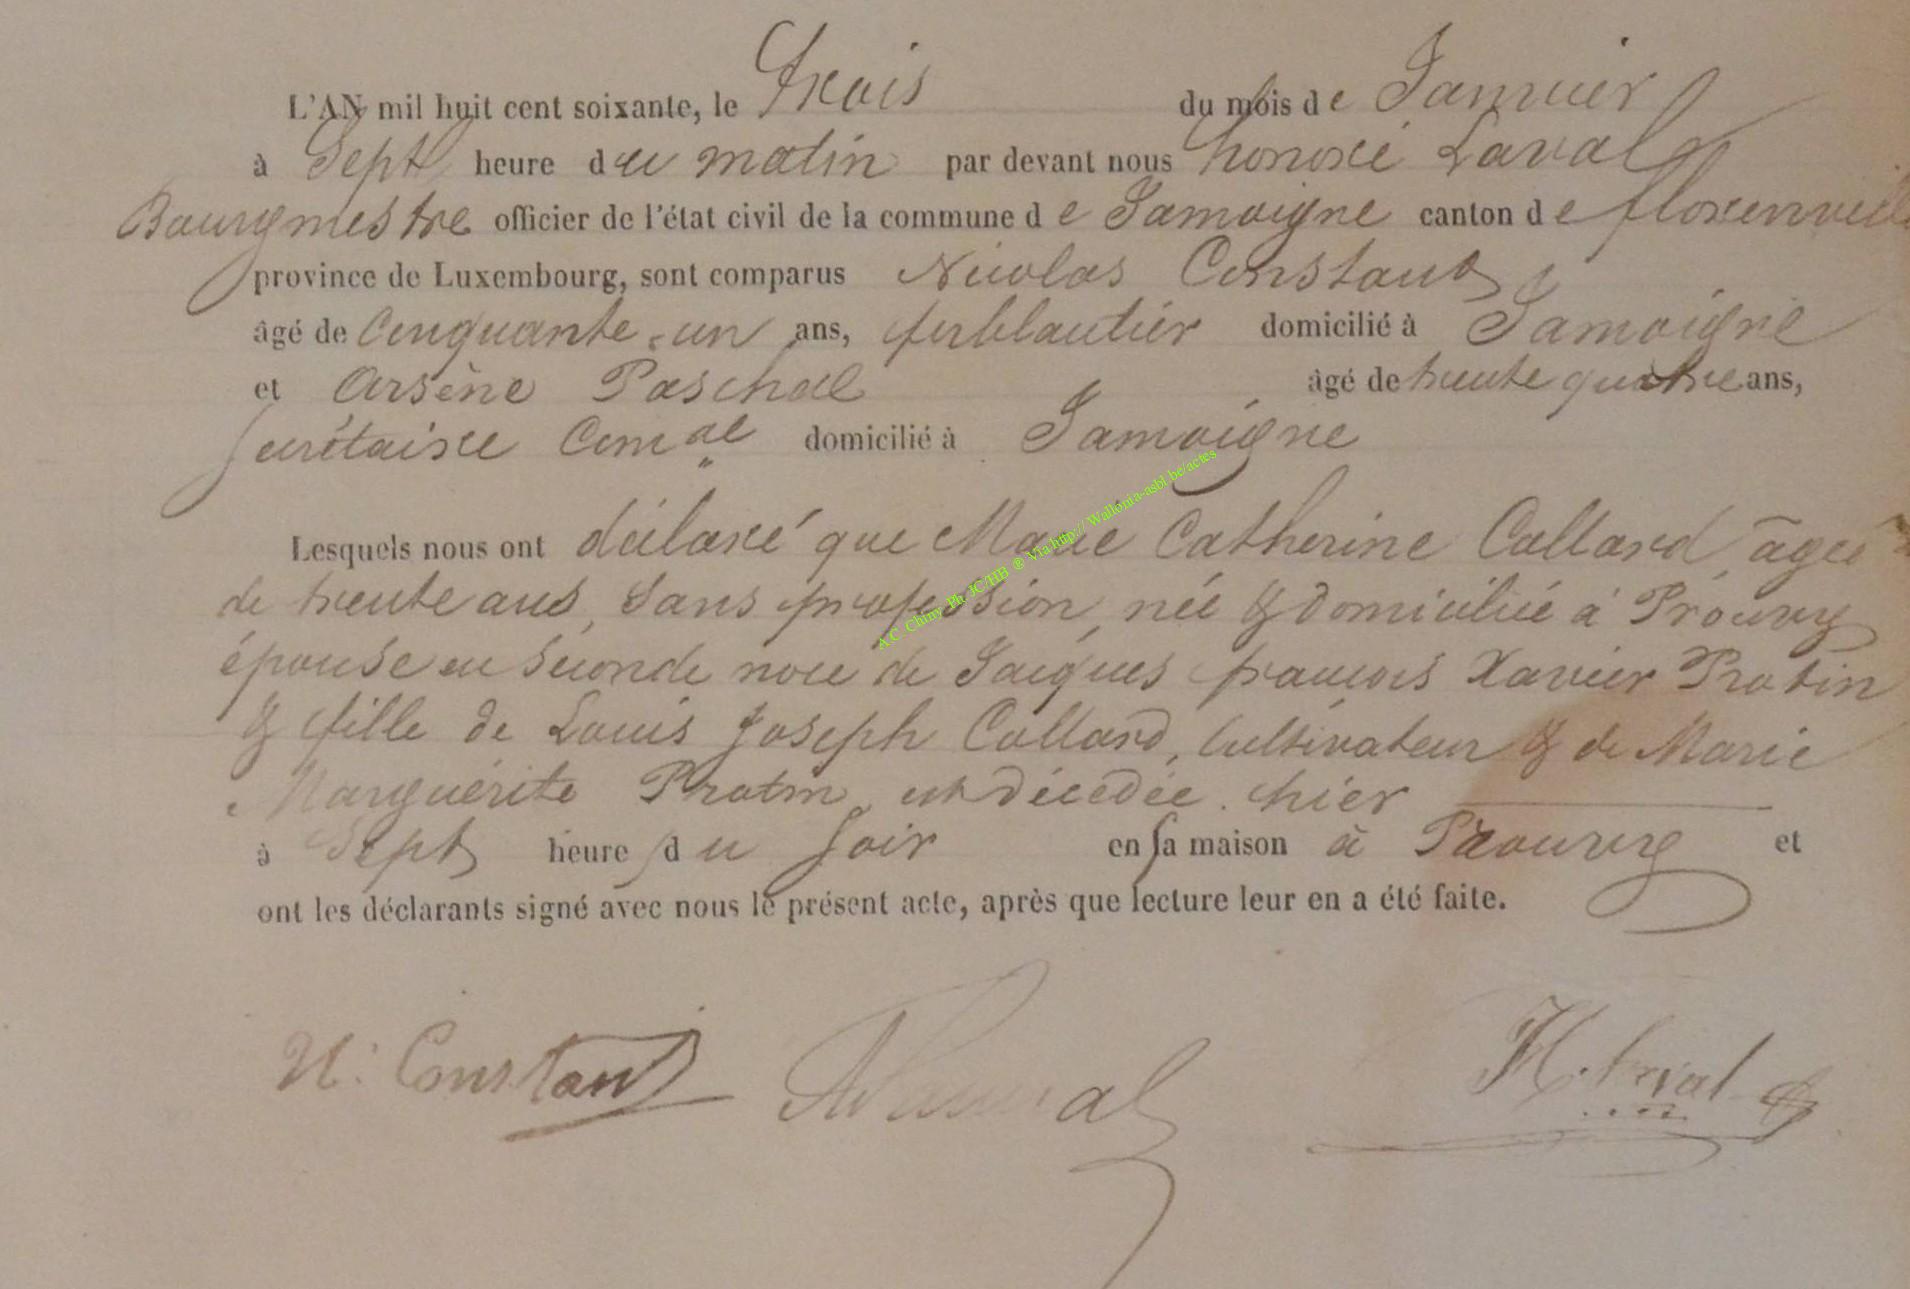 L'AN mil huit cent soixante, le Trois du mois de Janvier
à Sept heure du matin par devant nous honoré Laval
Bourgmestre officier de l'état civil de la commune de Jamoigne canton de florenville
province de Luxembourg, sont comparus Nicolas Constant
âgé de Cinquante-un ans, ferblantier domicilié à Jamoigne
et Arsène Paschal âgé de trente quatre ans,
Secrétaire Com.al domicilié à Jamoigne
Lesquels nous ont déclaré que Marie Catherine Collard, âgée
de trente ans, sans profession, née & domiciliée à Prouvy
épouse en seconde noce de Jacques françois Xavier Protin
& fille de Louis Joseph Collard, Cultivateur & de Marie
Marguérite Protin, est décédée hier
à Sept heure du soir en sa maison à Prouvy et
ont les déclarants signé avec nous le présent acte, après que lecture leur en a été faite.
N. Constant H. Laval
A.C. Chiny Ph JC/HB ® Via http:// Wallonia-asbl.be/actes